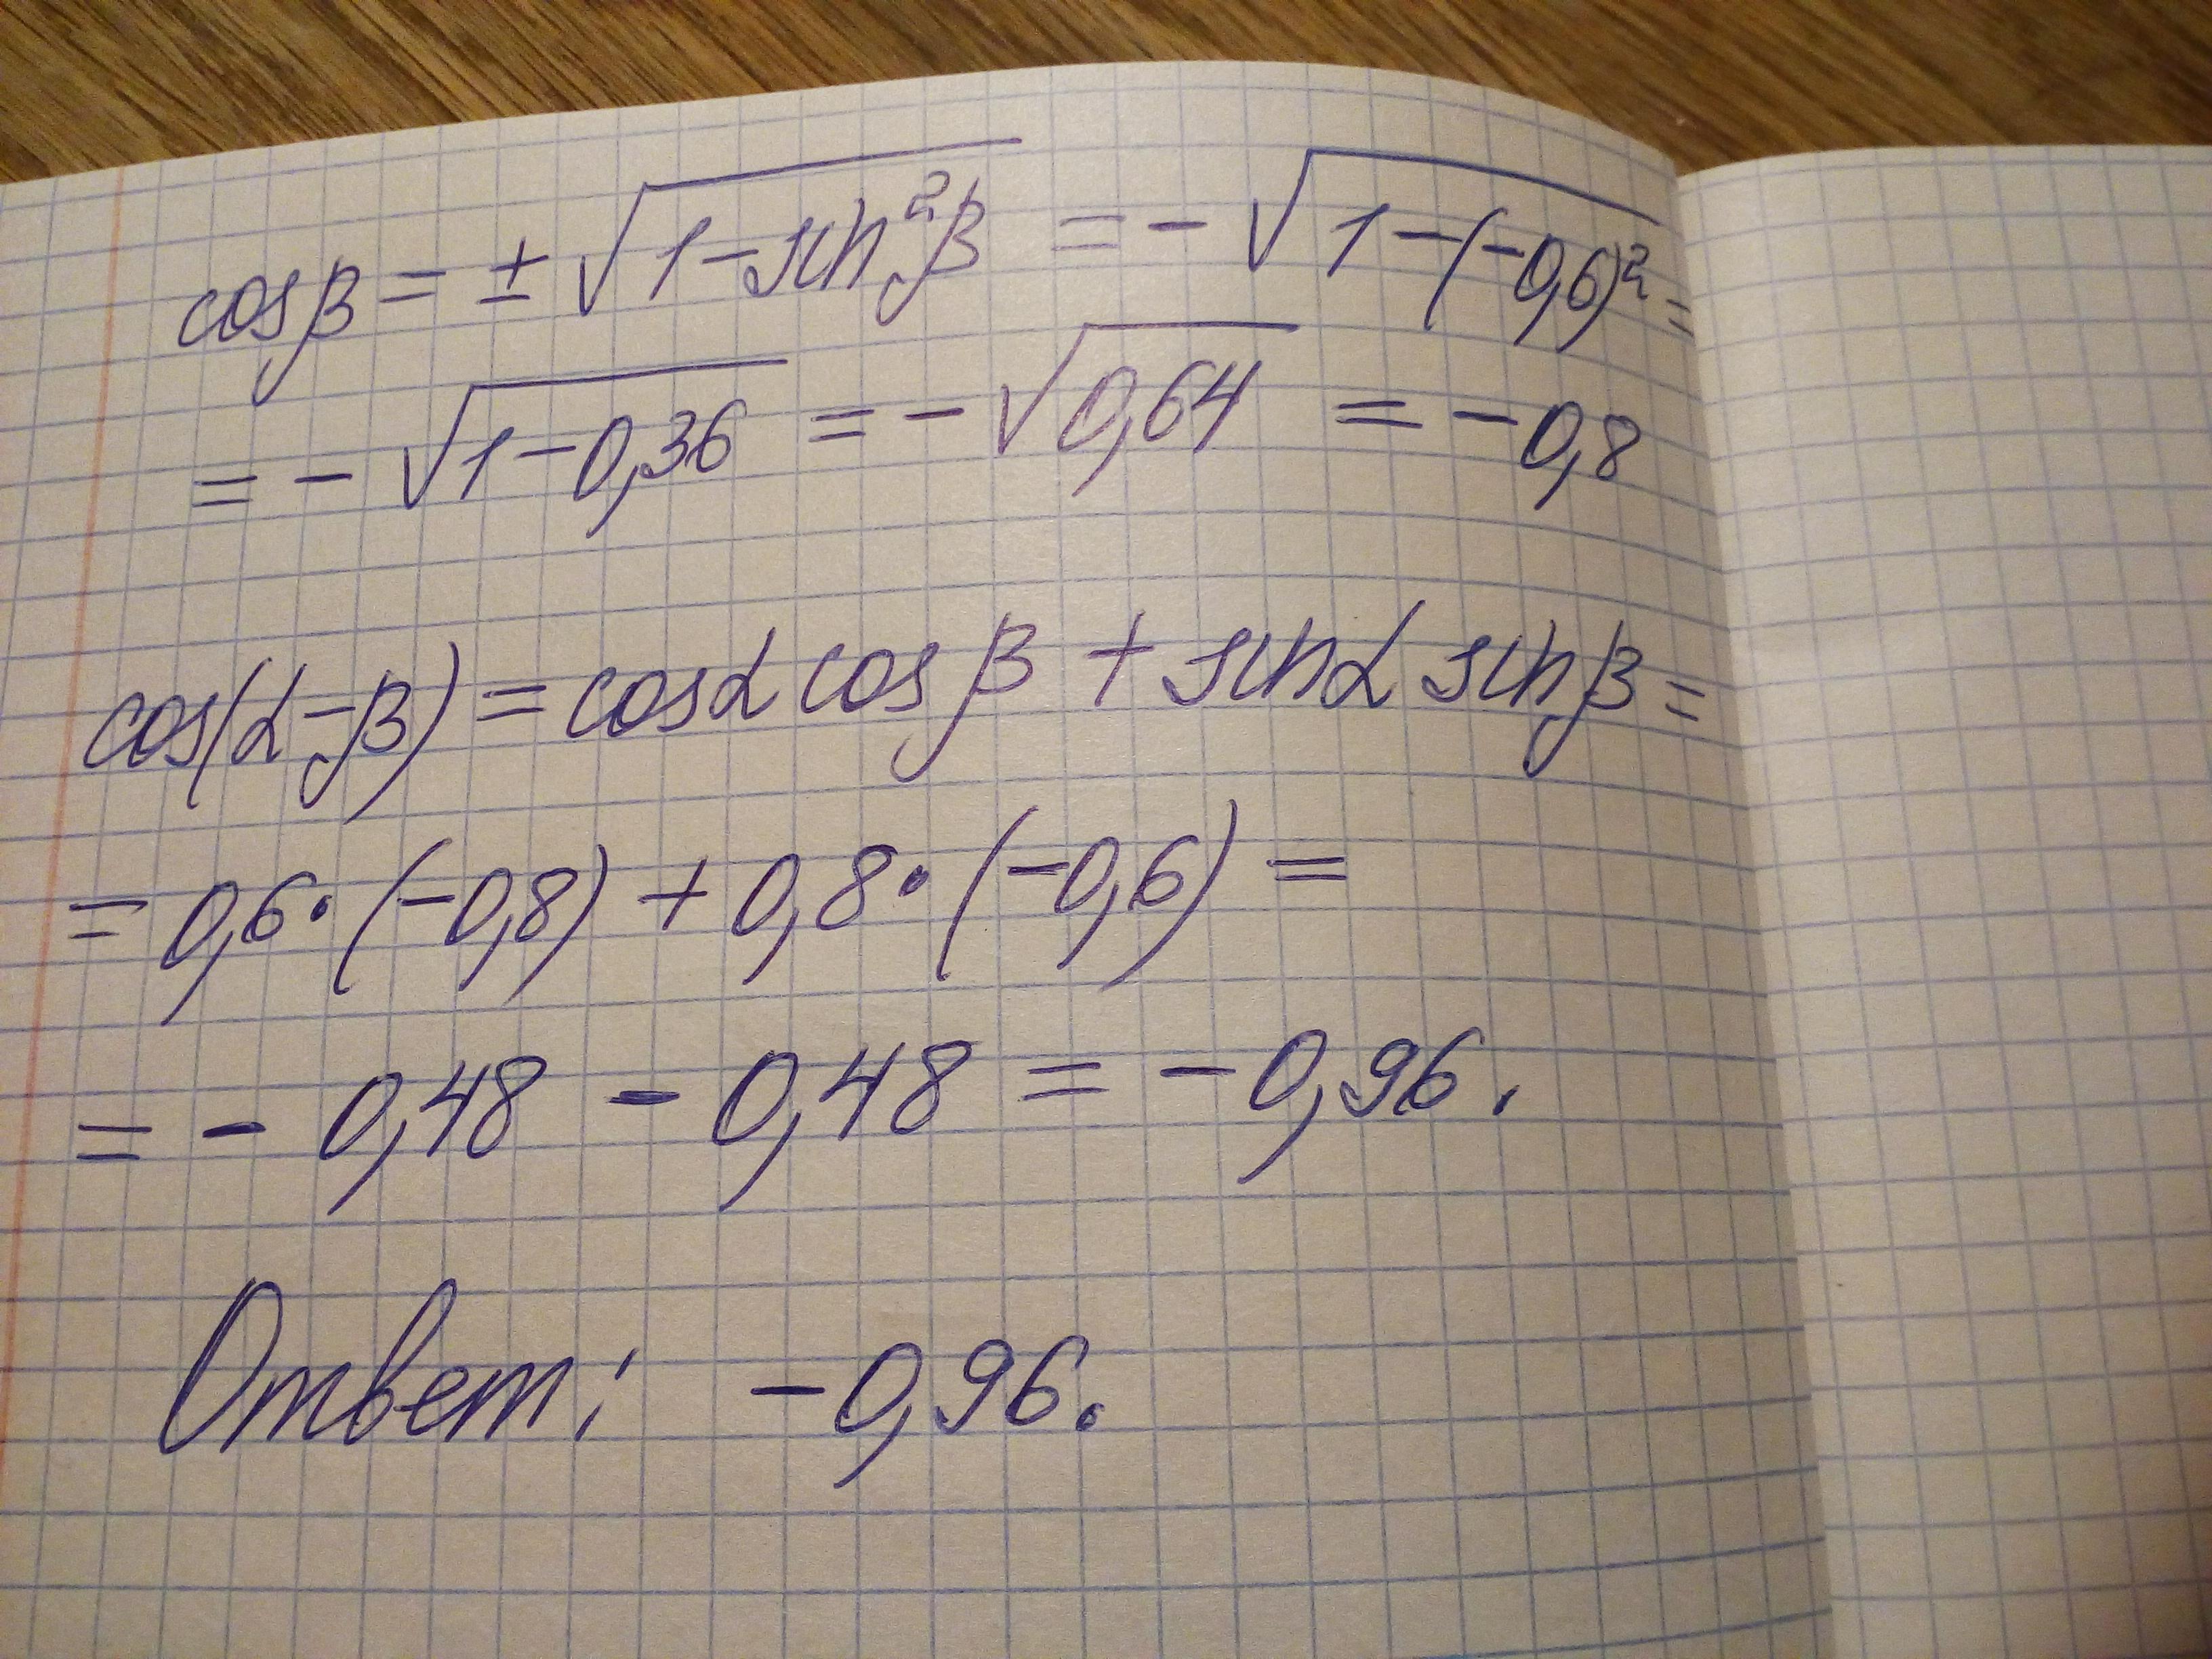 cosβ = ± √1-sin²β = - √1-(-0,6)² =
= - √1-0,36 = - √0,64 = -0,8
cos(α-β) = cosα cosβ + sinα sinβ =
= 0,6·(-0,8) + 0,8·(-0,6) =
= - 0,48 - 0,48 = -0,96.
Ответ: -0,96.